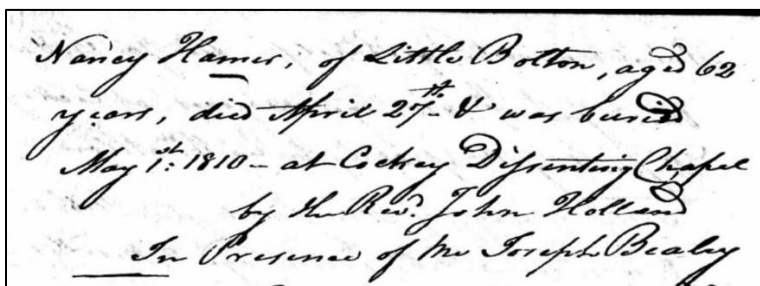 Nancy Hamer, of Little Bolton, aged 62
years, died April 27th & was buried
May 1st: 1810 - at Cockey Dissenting Chapel
by the Revd. John Holland
In Presence of Mr Joseph Bealey